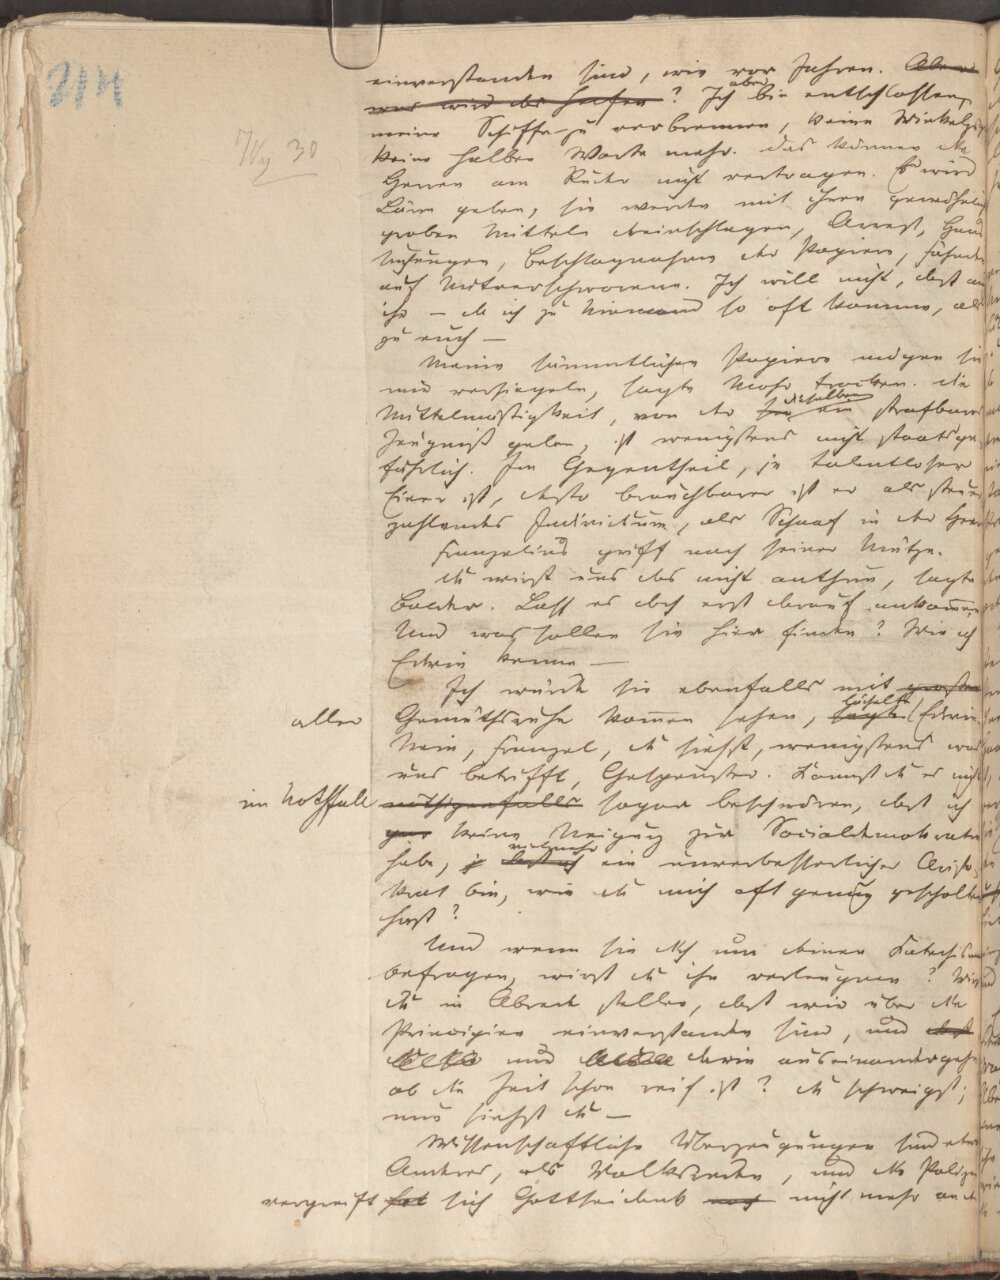 214
30
einverstanden sind, wie vor Jahren. Aber
was wird das helfen? Ich aber bin entschlossen,
meine Schiffe zu verbrennen, keine Winkelzüge
keine halben Worte mehr. Das können die
Herren am Ruder nicht vertragen. Es wird
Lärm geben, sie werden mit ihren gewöhnlich
groben Mitteln dreinschlagen, Arrest, Haus
suchungen, Beschlagnahme der Papiere, fahnden
auf Mitverschworene. Ich will nicht, daß auch
ihr — da ich zu Niemand so oft komme, als
zu euch —
Meine sämmtlichen Papiere mögen sie
mir versiegeln, sagte Mohr trocken. Die
Mittelmäßigkeit, von der dieselben ein strafbares
Zeugniß geben, ist wenigstens nicht staatsge
fährlich. Im Gegentheil, je talentloser
Einer ist, desto brauchbarer ist er als steuer
zahlendes Individuum, als Schaaf in der Heer
Franzelius griff nach seiner Mütze.
Du wirst uns das nicht anthun, sagte
Balder. Laß es doch erst darauf ankommen
Und was sollen sie hier finden? Wie ich
Edwin kenne —
Ich würde sie ebenfalls mit großer
aller Gemüthsruhe kommen sehen, lächelte Edwin
Nein, Franzel, du siehst, wenigstens was
uns betrifft, Gespenster. Kannst du es nicht
im Nothfall nöthigenfalls sogar beschwören, daß ich
gar keine Neigung zur Socialdemokratie
habe, vielmehr ein unverbesserlicher Aristo
krat bin, wie du mich oft genug gescholten
hast?
Und wenn sie dich um deinen Katechismus
befragen, wirst du ihn verleugnen? Wirst
du in Abrede stellen, daß wir über die
Principien einverstanden sind, und
und darin auseinandergehn
ob die Zeit schon reif ist? Du schweigst;
nun siehst du —
Wissenschaftliche Überzeugungen sind etwas
Anderes, als Volksreden, und die Polizei
vergreift hat sich Gottseidank nicht mehr an de